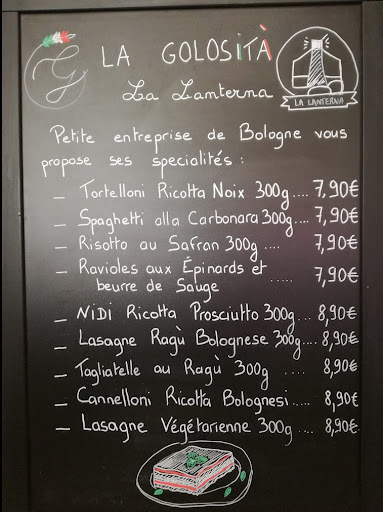 LA GOLOSITÀ
La Lanterna
LA LANTERNA
Petite entreprise de Bologne vous
propose ses specialités :
_ Tortelloni Ricotta Noix 300g.... 7,90€
_ Spaghetti alla Carbonara 300g.... 7,90€
_ Risotto au Safran 300g .... 7,90€
_ Ravioles aux Épinards et
beurre de Sauge ..... 7,90€
_ NiDi Ricotta Prosciutto 300g... 8,90€
_ Lasagne Ragù Bolognese 300g.... 8,90€
_ Tagliatelle au Ragù 300g .... 8,90€
_ Cannelloni Ricotta Bolognesi.... 8,90€
_ Lasagne Végétarienne 300g .... 8,90€